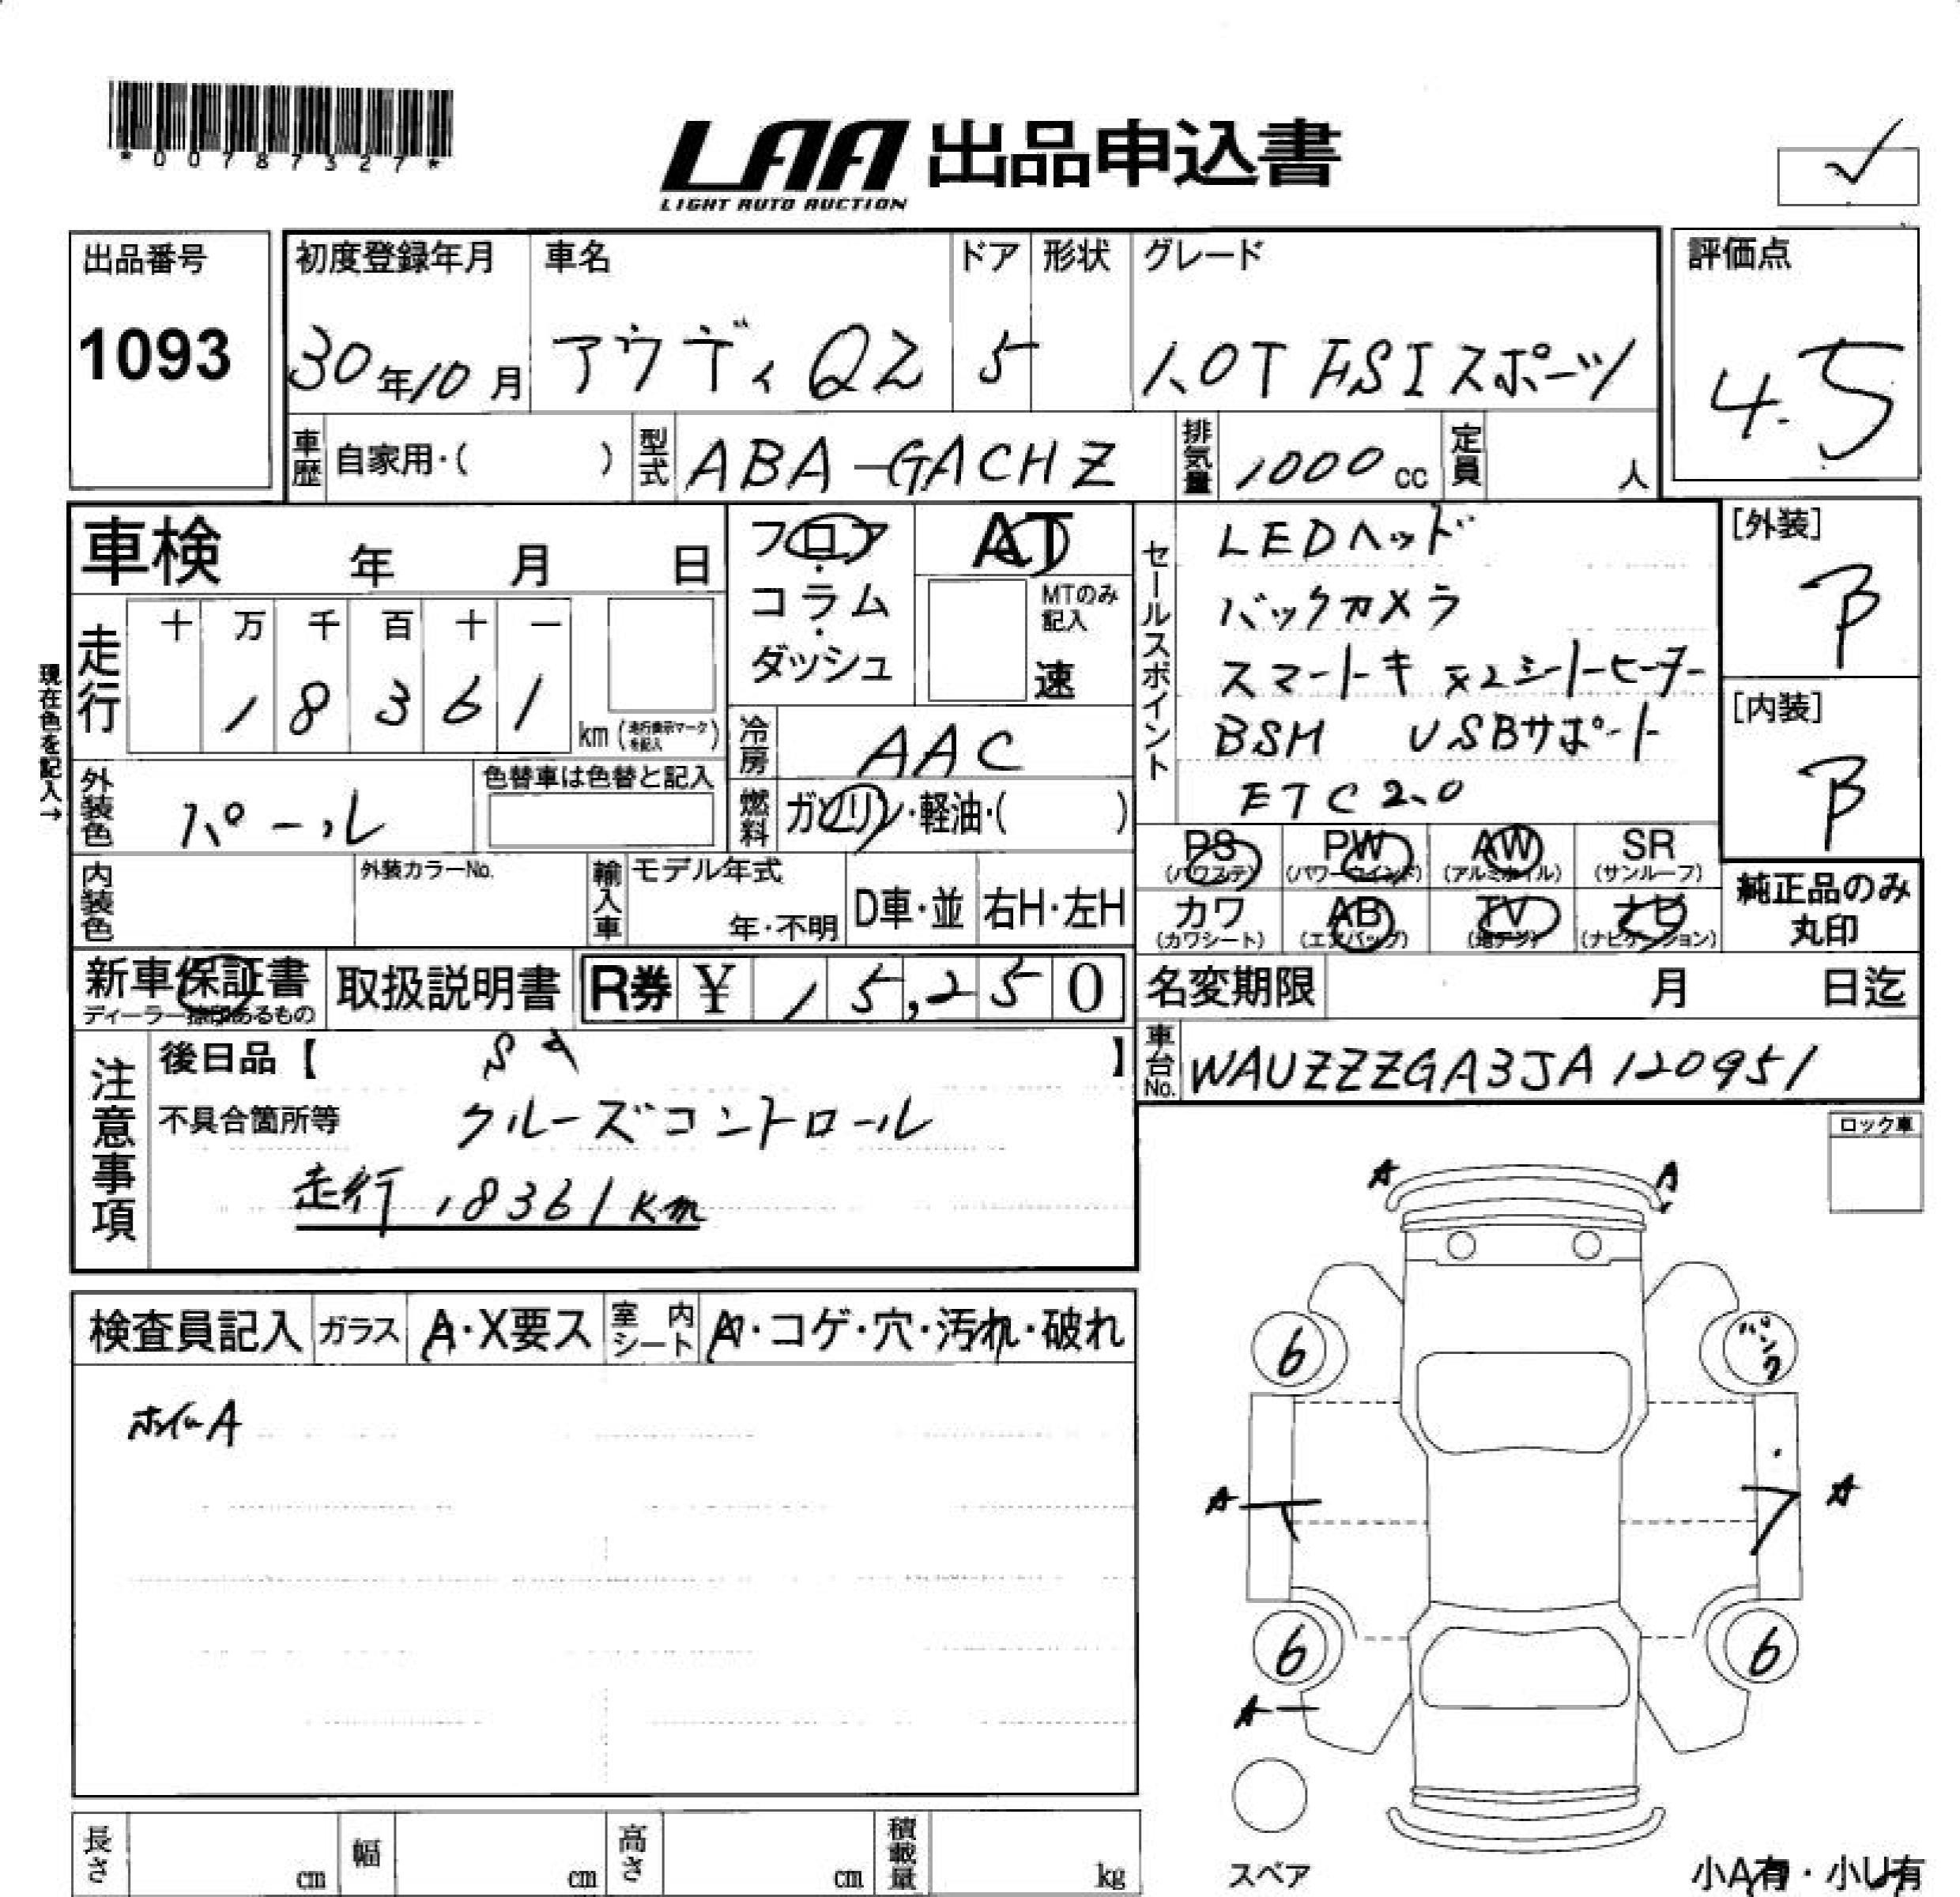 *00787327*
LAA 出品申込書
LIGHT AUTO AUCTION
出品番号
1093
初度登録年月
30年10月
車名
アウディ Q2
ドア
5
形状
グレード
1.0T FSIスポーツ
評価点
4.5
車歴
自家用・( )
型式
ABA-GACHZ
排気量
1000cc
定員
人
車検 年 月 日
フロア・コラム・ダッシュ
AT
MTのみ記入
速
現在色を記入→
走行
十 万 千 百 十 一
1 8 3 6 1
km
冷房
AAC
外装色
パール
色替車は色替と記入
燃料
ガソリン・軽油・( )
内装色
外装カラーNo.
輸入車
モデル年式
年・不明
D車・並
右H・左H
新車保証書
取扱説明書
R券 ¥ 15,250
セールスポイント
LEDヘッド
バックカメラ
スマートキ x2シートヒーター
BSM USBサポート
ETC2.0
[外装]
B
[内装]
B
PS
(パワステ)
PW
(パワーウインド)
AW
(アルミホイル)
SR
(サンルーフ)
カワ
(カワシート)
AB
(エアバッグ)
TV
(地デジ)
ナビ
(ナビゲーション)
純正品のみ
丸印
名変期限 月 日迄
車台No.
WAUZZZGA3JA120951
注意事項
後日品【 】
不具合箇所等
クルーズコントロール
走行 18361km
ロック車
検査員記入
ガラス
A・X要ス
室内シート
A・コゲ・穴・汚れ・破れ
A
A
6
パンク
A
A
6
6
A
スペア
小A有・小U有
長さ
cm
幅
cm
高さ
cm
積載量
kg